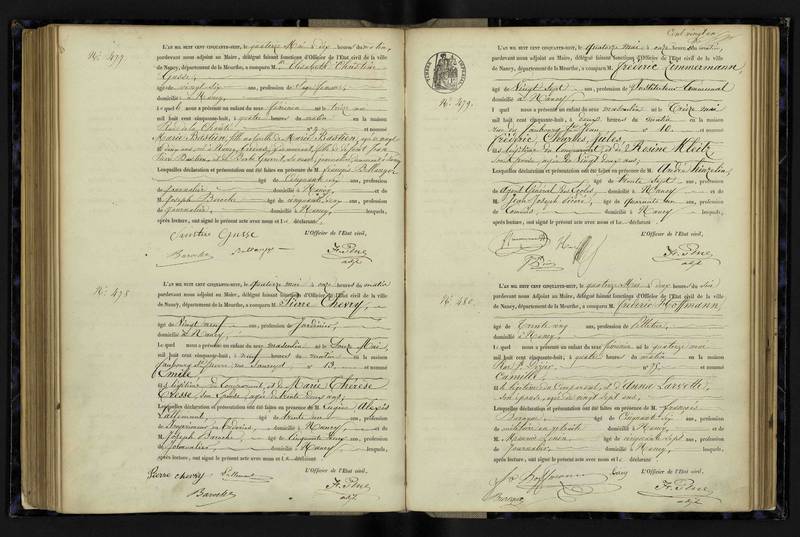 N° 477
L'AN MIL HUIT CENT CINQUANTE-HUIT, le quatorze Mai à dix heures du matin,
pardevant nous adjoint au Maire, délégué faisant fonctions d'Officier de l'Etat civil de la ville
de Nancy, département de la Meurthe, a comparu M Elisabeth Christine
Gusse,
âgée de vingt six ans, profession de Sage femme,
domiciliée à Nancy,
Laquelle nous a présenté un enfant du sexe féminin né le treize mai
mil huit cent cinquante-huit, à quatre heures du matin en la maison
n° et nommé
Marie Bastien, fille naturelle de Marie Bastien,
Lesquelles déclaration et présentation ont été faites en présence de M. François Bellanger
âgé de Cinquante six ans, profession
de Journalier domicilié à Nancy et de
M. Joseph Baroche âgé de cinquante deux ans, profession
de Journalier, domicilié à Nancy, lesquels,
après lecture, ont signé le présent acte avec nous et la déclarante.
L'Officier de l'Etat civil,
Gusse
Baroche Bellanger
adjt
N° 478
L'AN MIL HUIT CENT CINQUANTE-HUIT, le quatorze mai à onze heures du matin
pardevant nous adjoint au Maire, délégué faisant fonctions d'Officier de l'Etat civil de la ville
de Nancy, département de la Meurthe, a comparu M. Pierre Chevry,
âgé de Vingt neuf ans, profession de Jardinier,
domicilié à Nancy,
Lequel nous a présenté un enfant du sexe masculin né le Douze Mai,
mil huit cent cinquante-huit, à neuf heures du matin en la maison
faubourg St Pierre, rue n° 13 et nommé
Emile
fils légitime du Comparant, et de Marie Thérèse
son épouse, âgée de trente deux ans,
Lesquelles déclaration et présentation ont été faites en présence de M. Eugène Alexis
Lallement, âgé de trente ans, profession
de domicilié à Nancy et de
M. Joseph Baroche, âgé de Cinquante deux ans, profession
de Journalier, domicilié à Nancy, lesquels,
après lecture, ont signé le présent acte avec nous et le déclarant
L'Officier de l'Etat civil,
Pierre chevry Lallement
Baroche
adjt
Cent vingt un
TIMBRE IMPERIAL
N° 479.
L'AN MIL HUIT CENT CINQUANTE-HUIT, le quatorze mai à onze heures du matin,
pardevant nous adjoint au Maire, délégué faisant fonctions d'Officier de l'Etat civil de la ville
de Nancy, département de la Meurthe, a comparu M. Frédéric Zimmermann,
âgé de Vingt Sept ans, profession de Instituteur Communal
domicilié à Nancy,
Lequel nous a présenté un enfant du sexe masculin né le Treize mai
mil huit cent cinquante-huit, à heures du matin en la maison
rue du faubourg St Jean n° 10 et nommé
Frédéric Charles Jules
fils légitime du Comparant, et de Rosine
son épouse, âgée de Vingt deux ans,
Lesquelles déclaration et présentation ont été faites en présence de M. André
âgé de trente Sept ans, profession
de Agent Général domicilié à Nancy et de
M. Jean Joseph âgé de quarante un ans, profession
de Commis, domicilié à Nancy lesquels,
après lecture, ont signé le présent acte avec nous et le déclarant
L'Officier de l'Etat civil,
adjt
N° 480.
L'AN MIL HUIT CENT CINQUANTE-HUIT, le quatorze Mai à deux heures du soir
pardevant nous adjoint au Maire, délégué faisant fonctions d'Officier de l'Etat civil de la ville
de Nancy, département de la Meurthe, a comparu M. Frédéric Hoffmann,
âgé de Trente cinq ans, profession de Sellier,
domicilié à Nancy,
Lequel nous a présenté un enfant du sexe féminin né le quatorze mai
mil huit cent cinquante-huit, à quatre heures du matin en la maison
Rue St Dizier, n° 75 et nommé
Camille,
fille légitime du Comparant, et d'Anna
son épouse, âgée de vingt sept ans,
Lesquelles déclaration et présentation ont été faites en présence de M. François
âgé de Cinquante six ans, profession
de militaire en retraite domicilié à Nancy, et de
M. âgé de cinquante sept ans, profession
de Journalier, domicilié à Nancy, lesquels,
après lecture, ont signé le présent acte avec nous et le déclarant
L'Officier de l'Etat civil,
Hoffmann
adjt